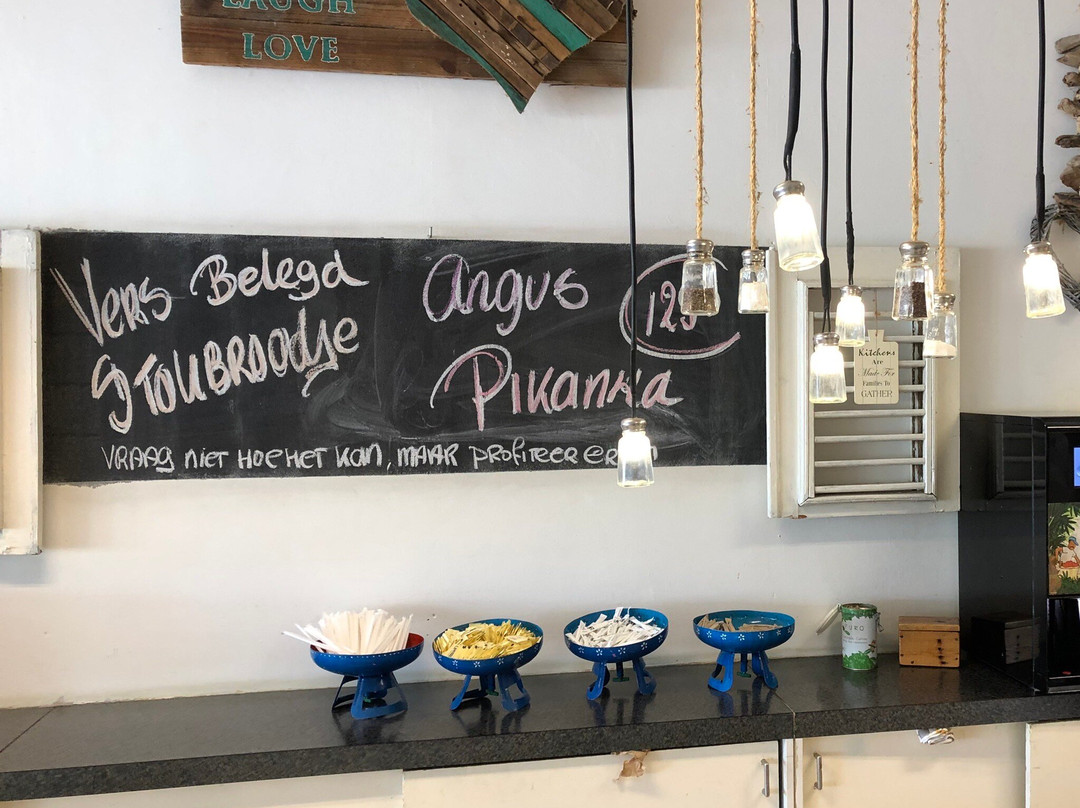 LAUGH
LOVE
Vers Belegd
STOKBROODJE
Angus
Pikanha
VRAAG NIET HOE HET KAN, MAAR PROFITEER
Kitchens
Are
Made For
Families To
GATHER